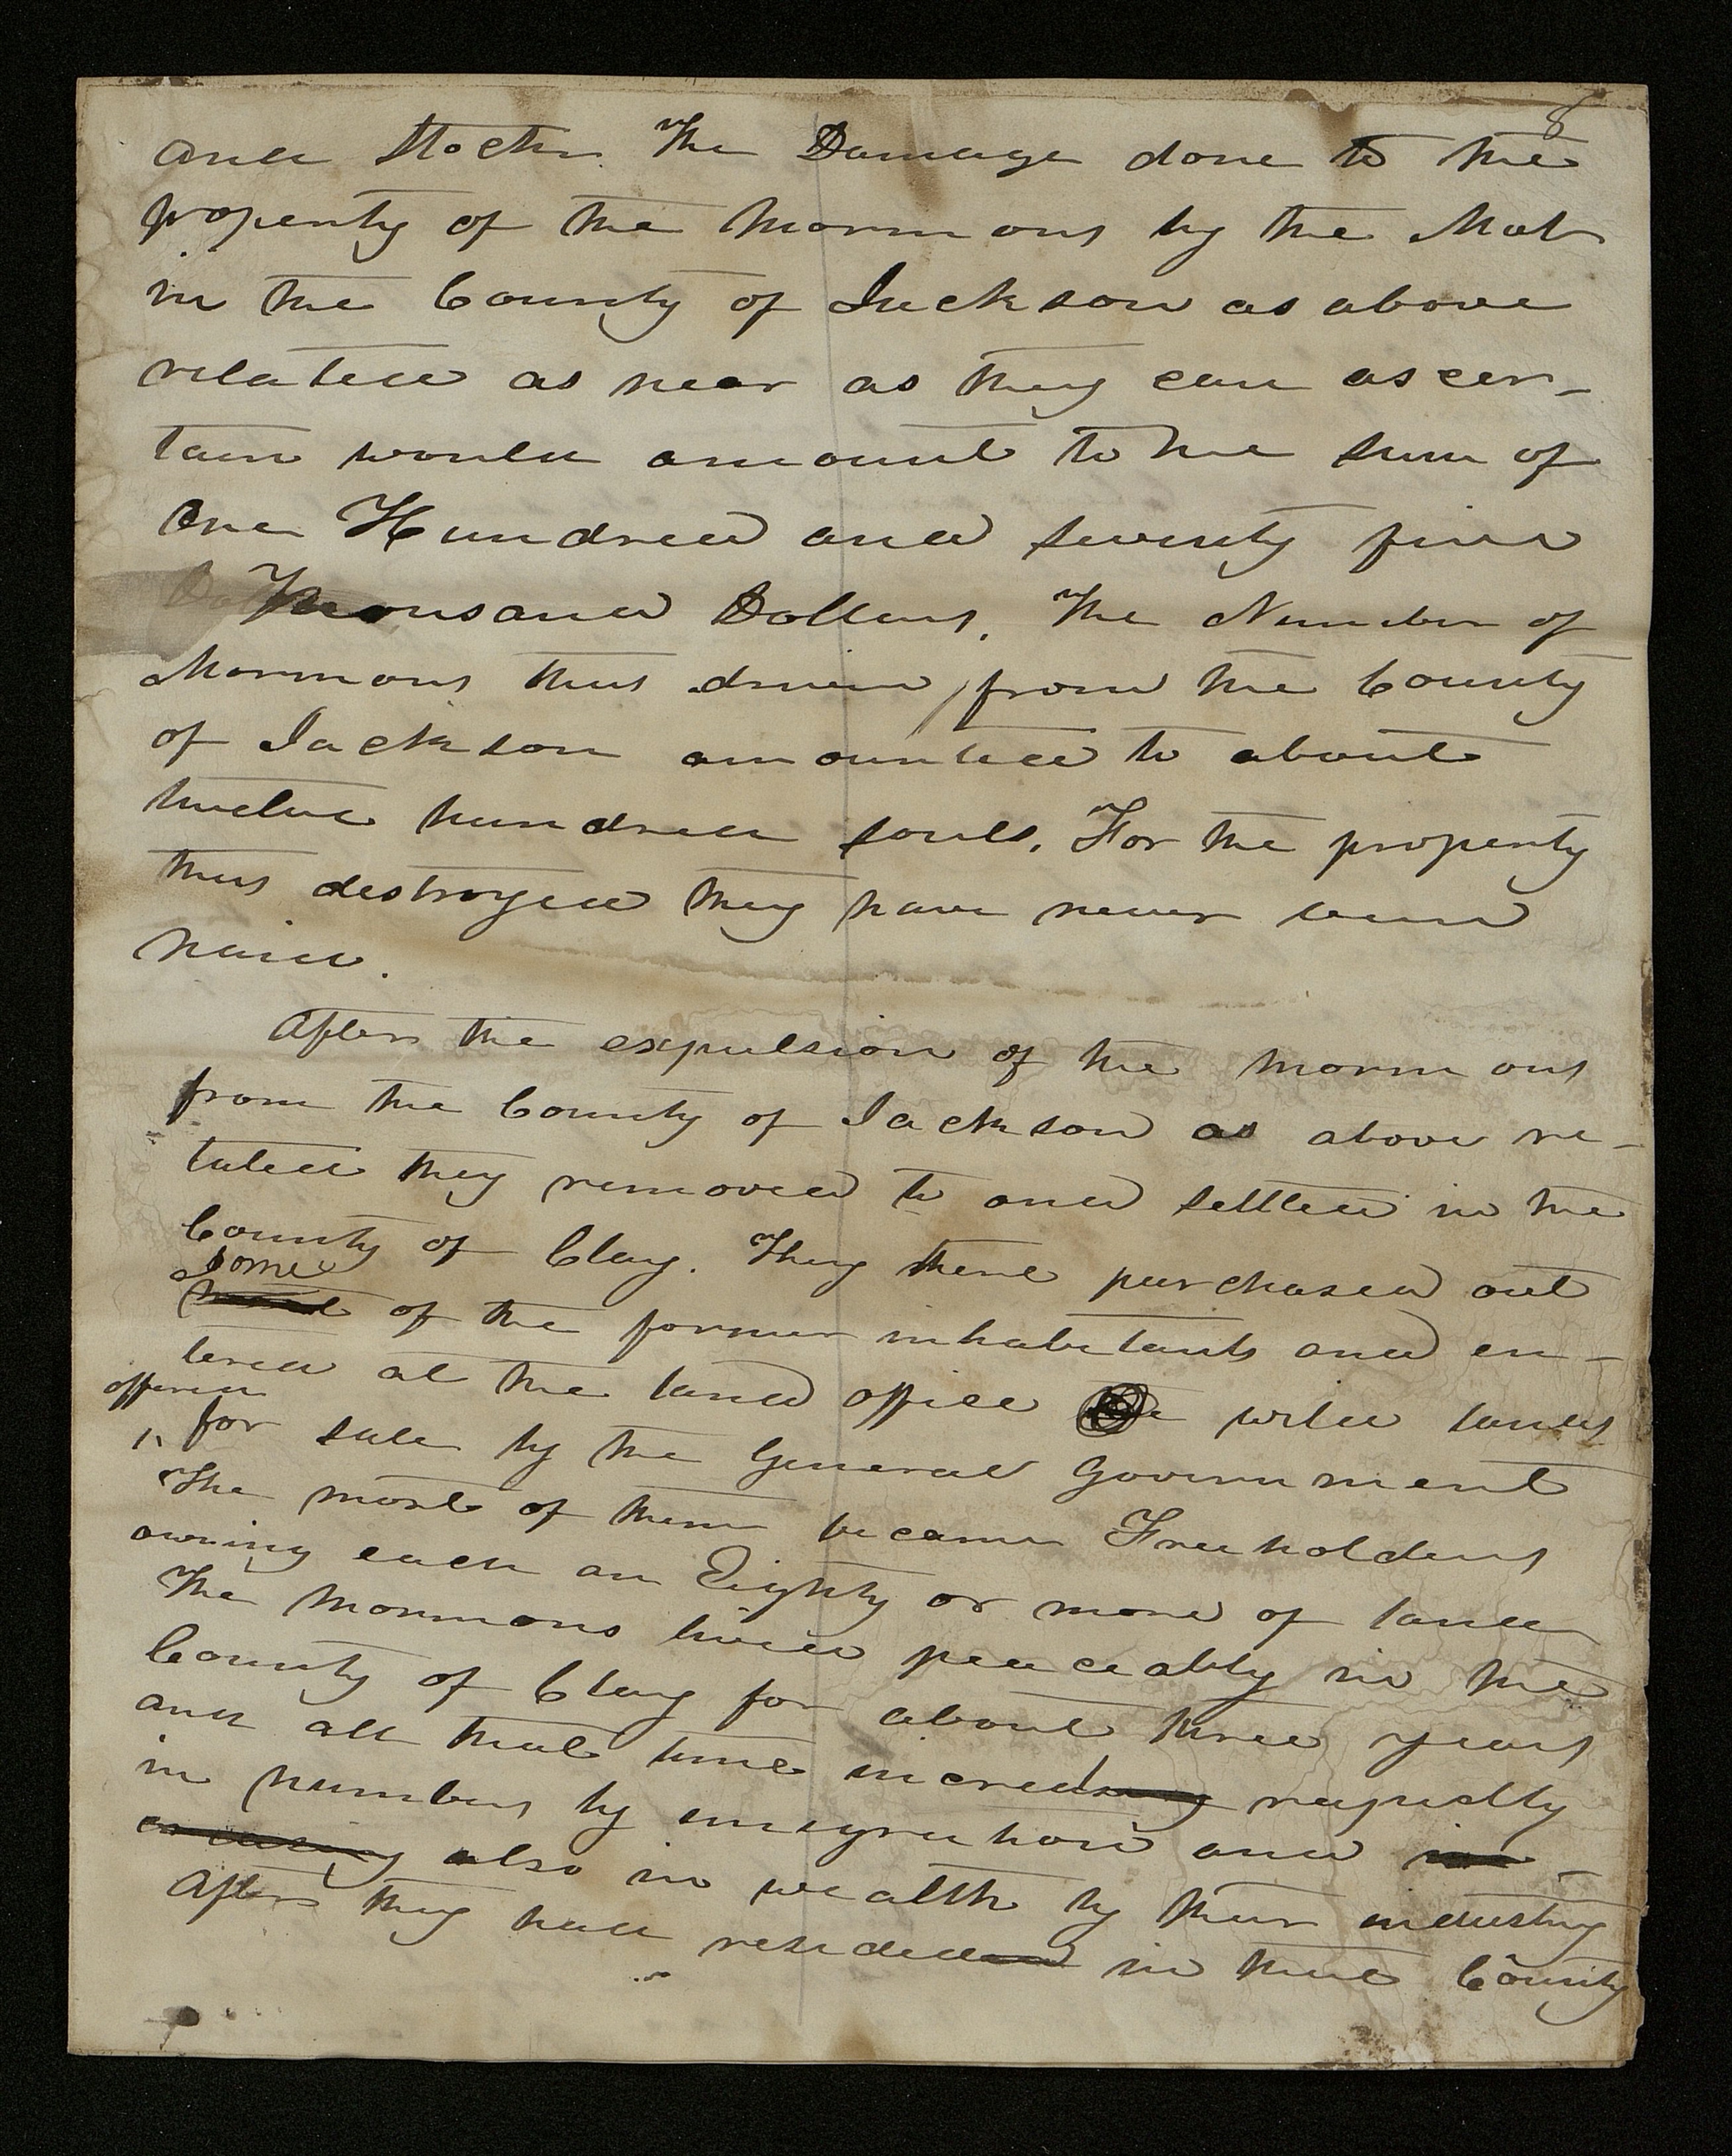 8
and Stocks. The Damage done to the
property of the Mormons by the Mob
in the County of Jackson as above
related as near as they can ascer-
tain would amount to the sum of
One Hundred and seventy five
Thousand Dollars. The Number of
Mormons thus driven from the County
of Jackson amounted to about
twelve hundred souls. For the property
thus destroyed they have never been
paid.
After the expulsion of the mormons
from the County of Jackson as above re-
lated they removed to and settled in the
County of Clay. They there purchased out
some
most of the former inhabitants and en-
tered at the land office the wild lands
offered
for sale by the General Government
The most of them became Freeholders
owning each an Eighty or more of land
The Mormons lived peaceably in the
County of Clay for about three years
and all that time increasing rapidly
in numbers by emigration and in-
creasing also in wealth by their industry
After they had resided in that County